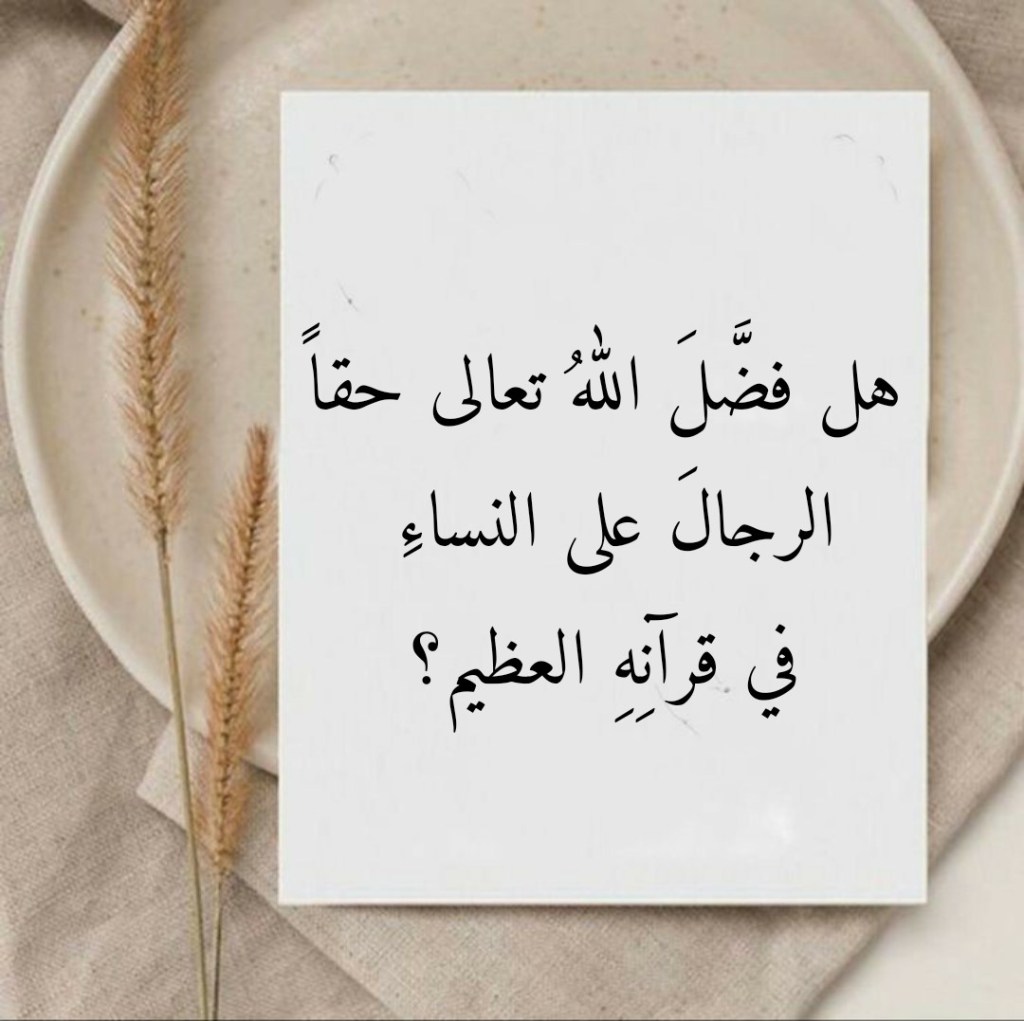 هل فضَّلَ اللهُ تعالى حقاً
الرجالَ على النساءِ
في قرآنِهِ العظيم؟